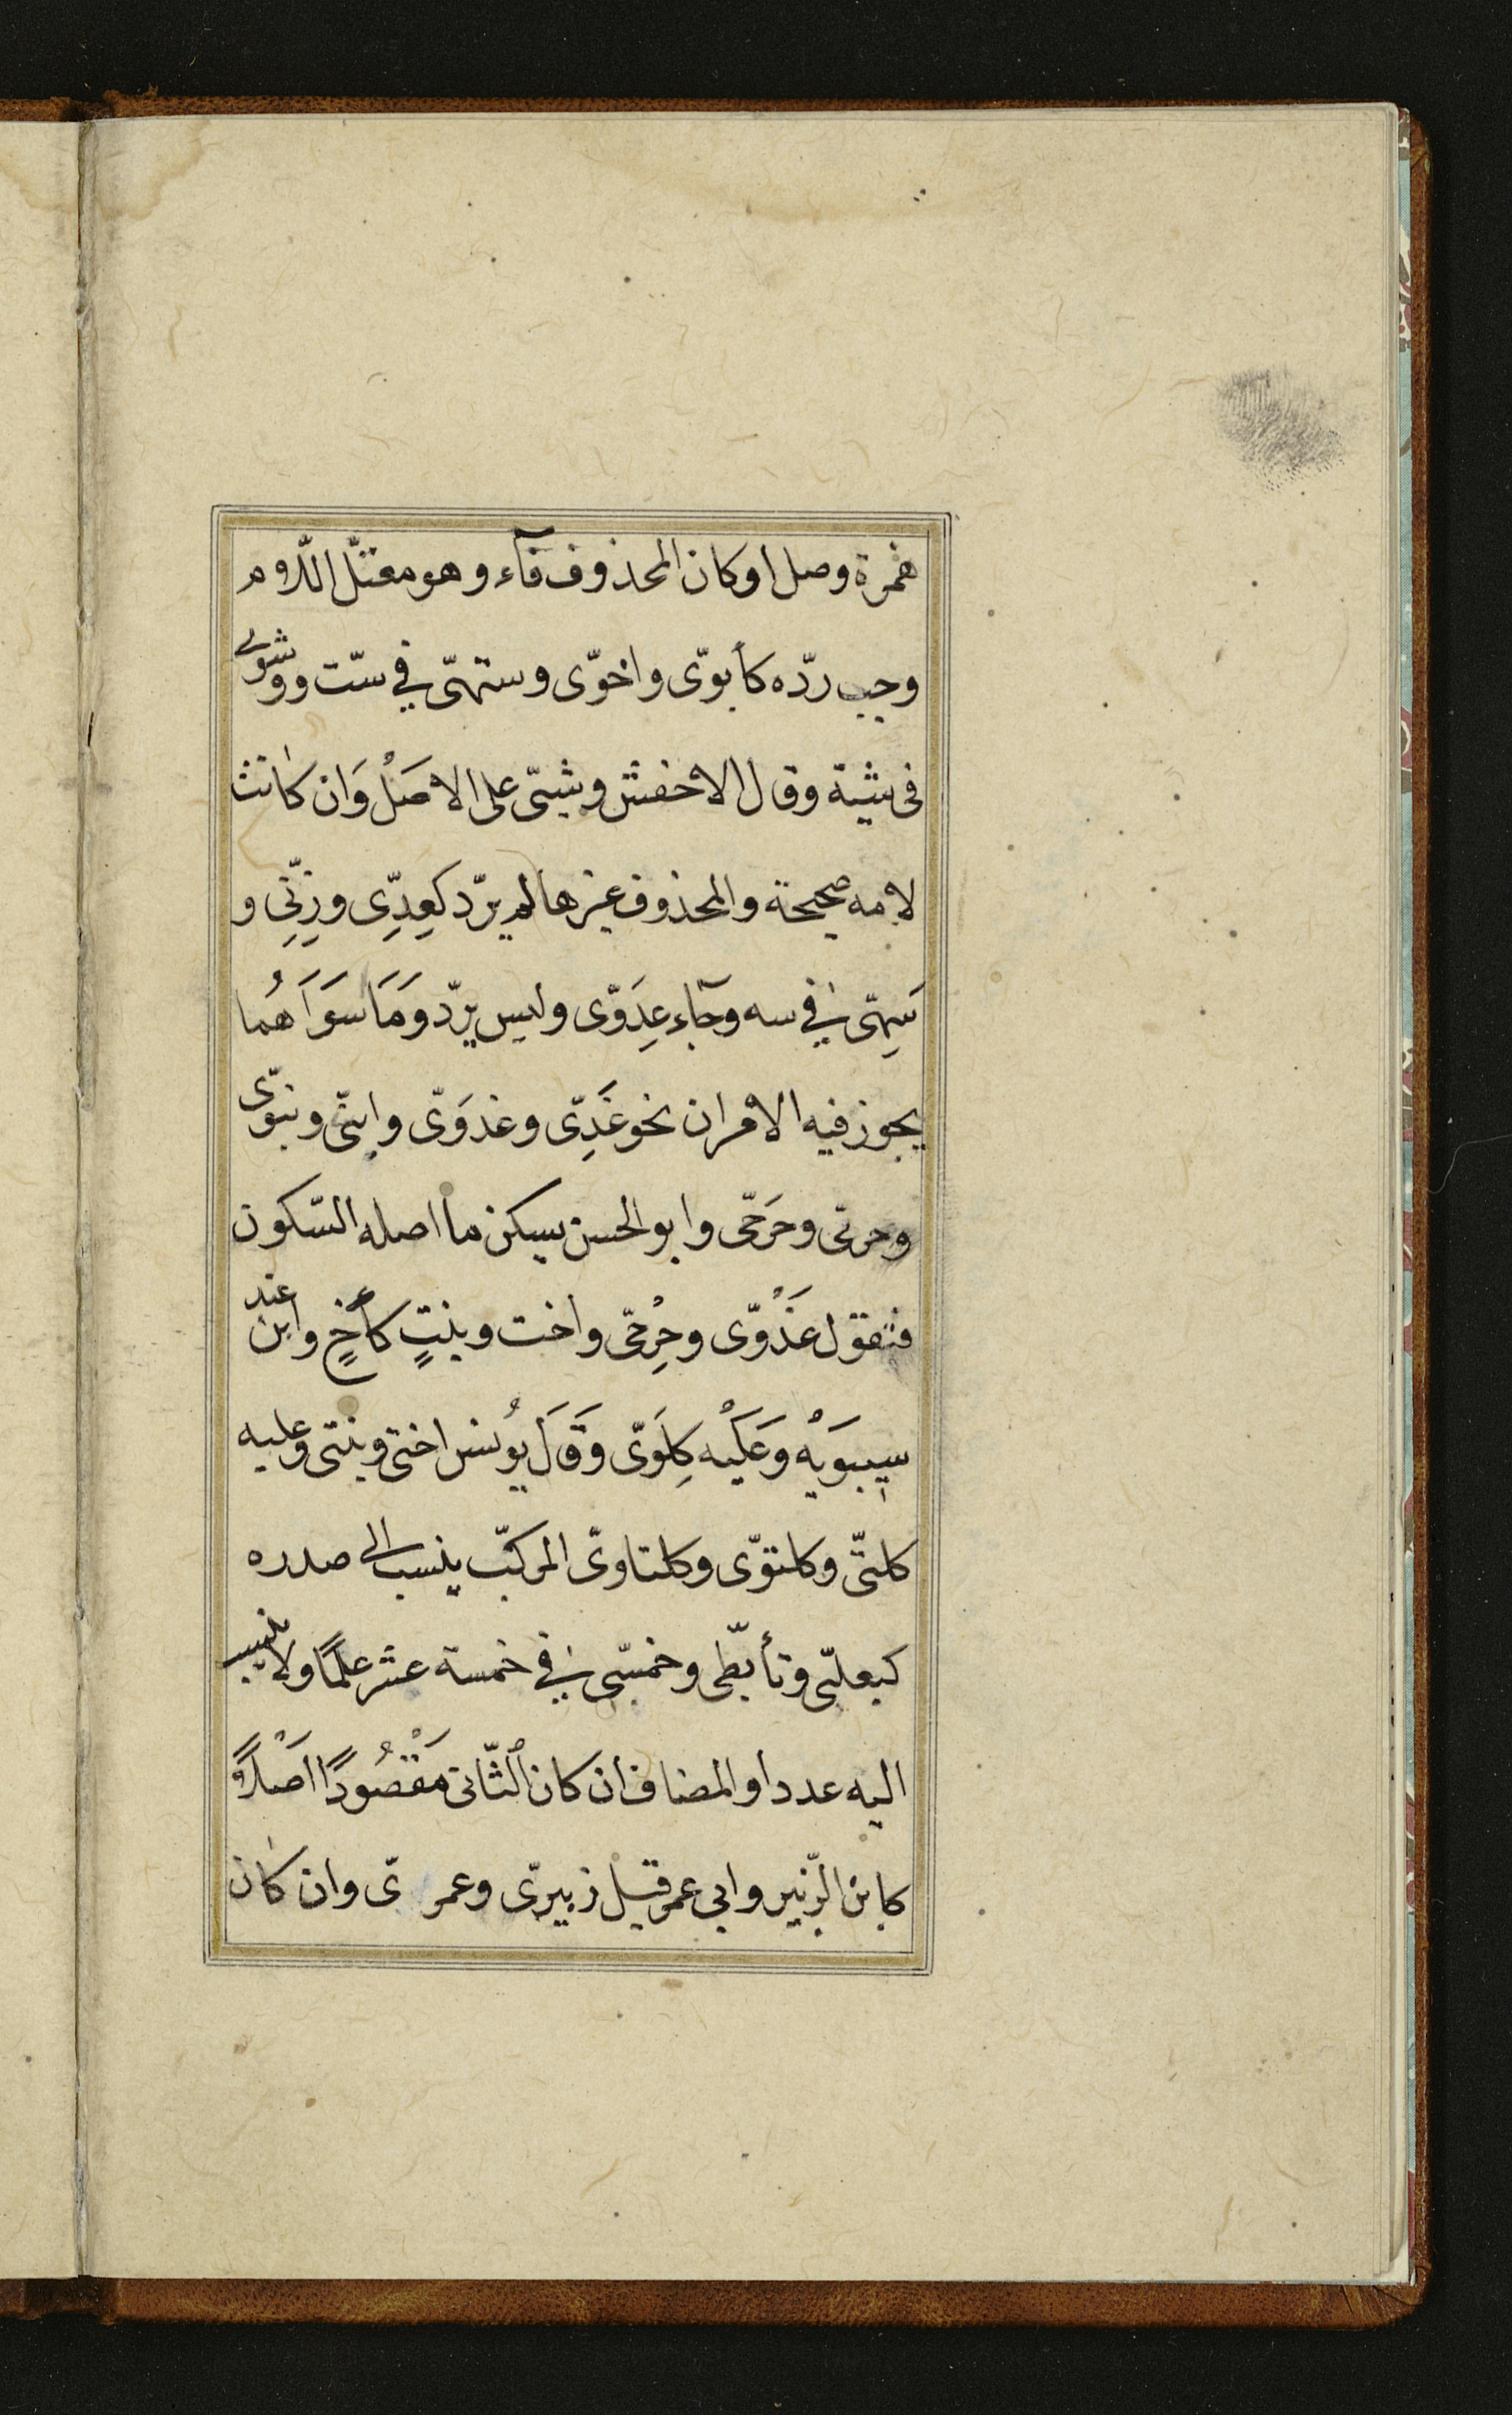 همزة وصل او كان المحذوف فآء وهو معتلّ اللّام
وجب ردّه كأبوّى واخوّى وستهىّ في ستّ ووشوى
فى شية وقال الاخفش وشيىّ على الاصَلْ وَان كانت
لامه صحيحة والمحذوف غيرها لم يردّ كعِدِّى وزِنِّى و
سَهِىّ في سه وجآء عِدَوّى وليس بردّ وَمَا سوَاهُما
يجوز فيه الامران نحو غَدِىّ وغدوَىّ وابنىّ وبنوّى
وحرىّ وحَرحىّ وابو الحسن يسكن ما اصله السّكون
فتقول غَدْوّى وحِرْحىّ واخت وبنتٍ كأخٍ وابن عند
سيبوَيْه وَعَلَيْه كِلَوىّ وَقَالَ يُونس اختى وبنتى وعليه
كلتىّ وكلتوّى وكلتاوىّ المركّب ينسب الى صدره
كبعلىّ وتأبّطى وخمسىّ في خمسة عشر علمًا ولا ينسب
اليه عددا والمضاف ان كان الثّانى مَقْصُودًا اصَلْاً
كابن الزّبير وابى عمر قيل زبيرىّ وعمرىّ وان كان